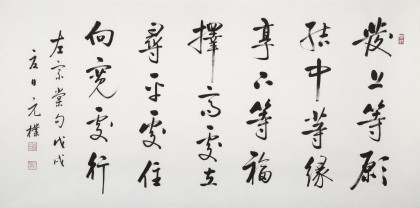 發上等願
結中等緣
享下等福
擇高處立
尋平處住
向寬處行
左宗棠句戊戌
夏日元樸